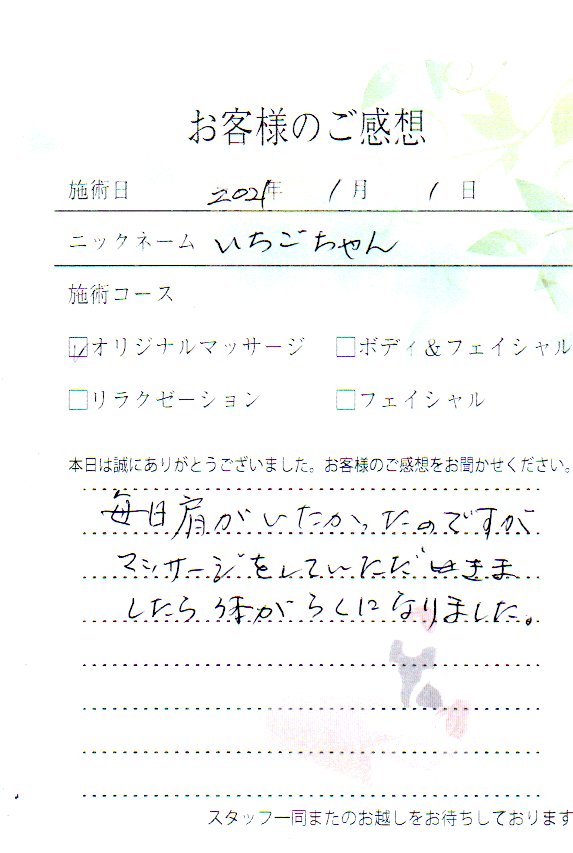 お客様のご感想
施術日 2021年 1月 1日
ニックネーム いちごちゃん
施術コース
☑オリジナルマッサージ □ボディ&フェイシャル
□リラクゼーション □フェイシャル
本日は誠にありがとうございました。お客様のご感想をお聞かせください。
毎日肩がいたかったのですが
マッサージをしていただきま
したら体がらくになりました。
スタッフ一同またのお越しをお待ちしております